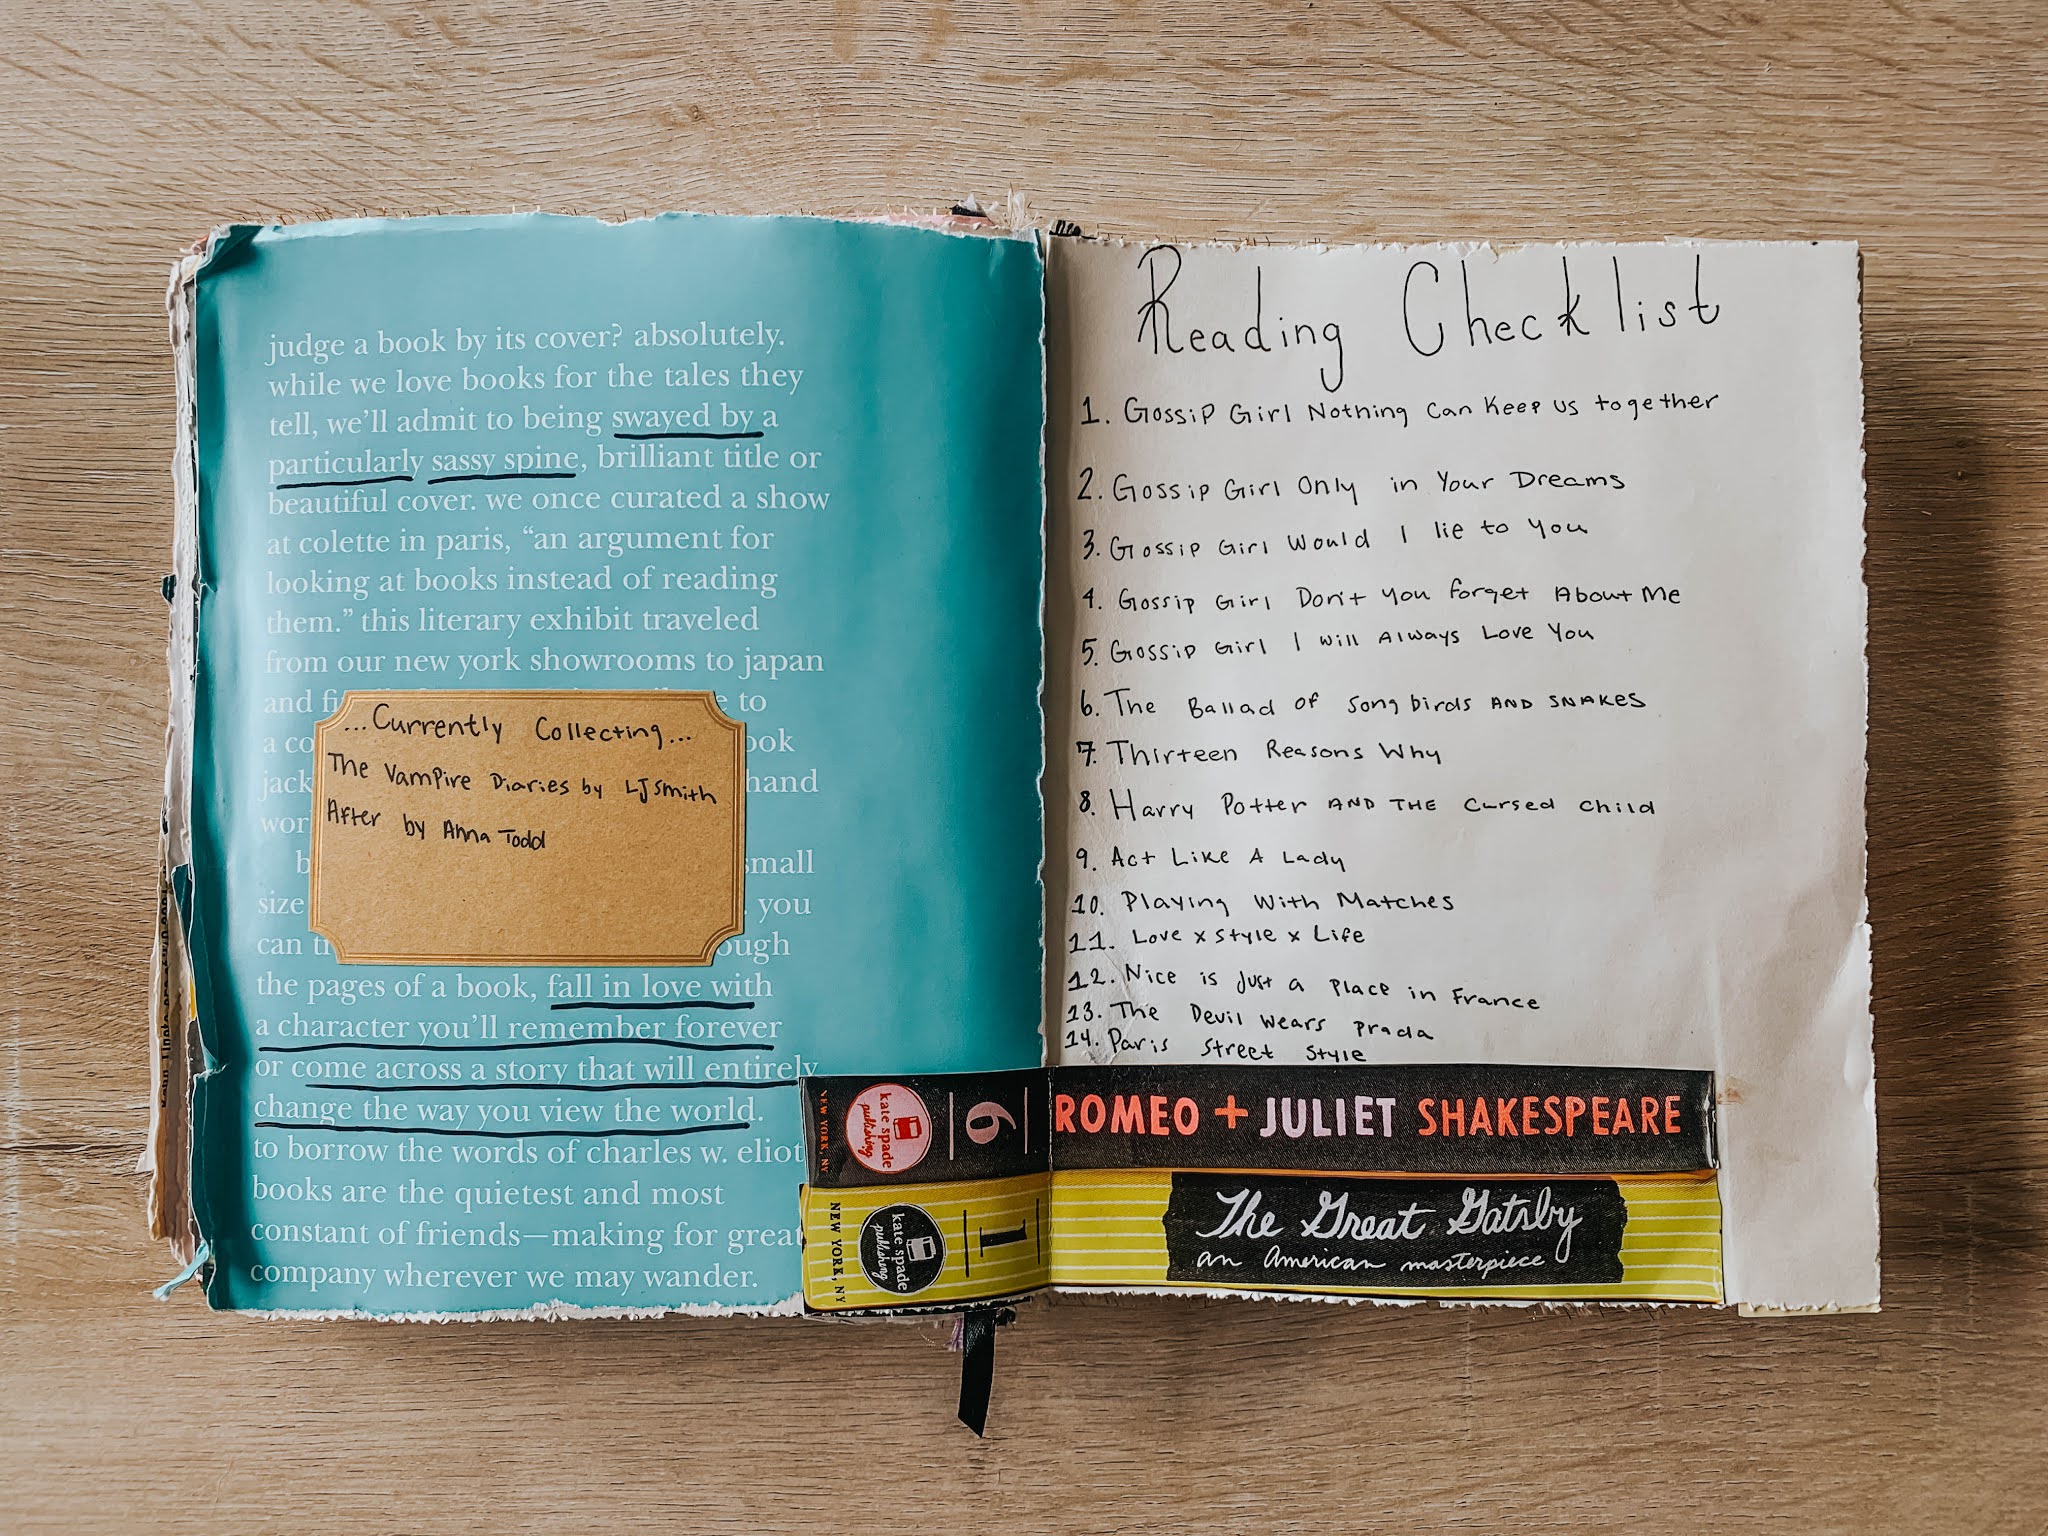 judge a book by its cover? absolutely.
while we love books for the tales they
tell, we'll admit to being swayed by a
particularly sassy spine, brilliant title or
beautiful cover. we once curated a show
at colette in paris, "an argument for
looking at books instead of reading
them." this literary exhibit traveled
from our new york showrooms to japan
and to
a ook
jack hand
small
size you
can ough
the pages of a book, fall in love with
a character you'll remember forever
or come across a story that will entirely
change the way you view the world.
to borrow the words of charles w. eliot
books are the quietest and most
constant of friends—making for great
company wherever we may wander.
...Currently Collecting...
The Vampire Diaries by LJ Smith
After by Anna Todd
Reading Checklist
1. Gossip Girl Nothing Can Keep us together
2. Gossip Girl Only in Your Dreams
3. Gossip Girl Would I lie to you
4. Gossip Girl Don't you forget About Me
5. Gossip Girl I will Always Love You
6. The Ballad of Songbirds AND SNAKES
7. Thirteen Reasons Why
8. Harry Potter AND THE Cursed Child
9. Act Like A Lady
10. Playing With Matches
11. Love x Style x Life
12. Nice is Just a Place in France
13. The Devil Wears Prada
14. Paris Street Style
NEW YORK, NY
kate spade
publishing
6
ROMEO + JULIET SHAKESPEARE
NEW YORK, NY
kate spade
publishing
1
The Great Gatsby
an American masterpiece